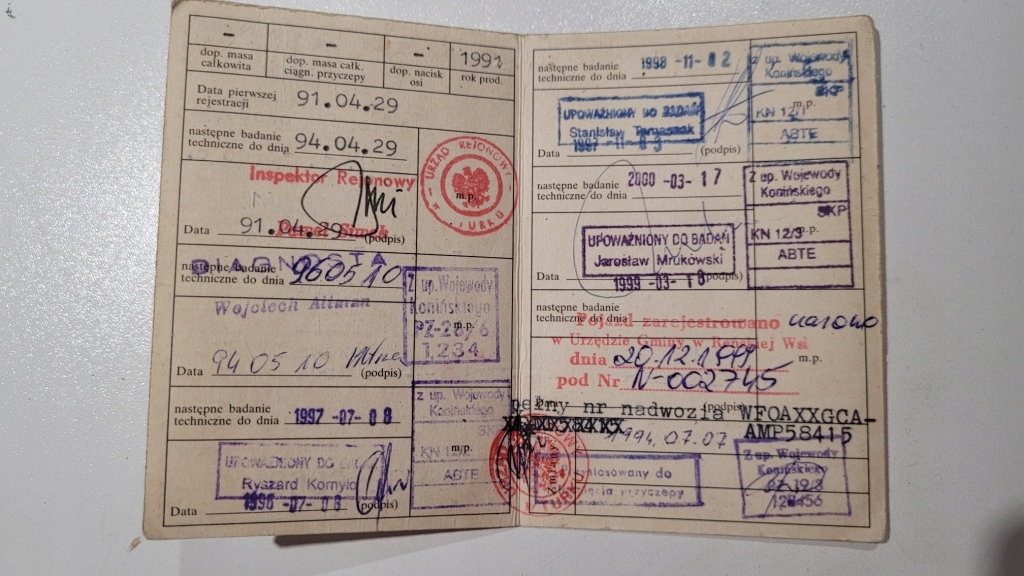 – – – 1991
dop. masa całkowita
dop. masa całk. ciągn. przyczepy
dop. nacisk osi
rok prod.
Data pierwszej rejestracji 91.04.29
następne badanie techniczne do dnia 94.04.29
URZĄD REJONOWY
w TURKU
m.p.
Inspektor Rejonowy
Data 91.04.29 (podpis)
DIAGNOSTA
następne badanie techniczne do dnia 960510
Wojciech
Z up. Wojewody
Konińskiego
PZ-28/6
m.p.
1234
Data 94 05 10 (podpis)
następne badanie techniczne do dnia 1997-07-08
z up. Wojewody
Konińskiego
m.p.
ABTE
UPOWAŻNIONY DO
Ryszard
Data 1996-07-08 (podpis)
następne badanie techniczne do dnia 1998-11-02
z up. Wojewody
Konińskiego
SKP
m.p.
KN 12/1
ABTE
UPOWAŻNIONY DO BADAŃ
Stanisław
Data (podpis)
następne badanie techniczne do dnia 2000-03-17
Z up. Wojewody
Konińskiego
SKP
KN 12/3 m.p.
ABTE
UPOWAŻNIONY DO BADAŃ
Jarosław Mrukowski
Data 1999-03-18 (podpis)
następne badanie techniczne do dnia
Pojazd zarejestrowano
w Urzędzie Gminy w Reńskiej Wsi
dnia 20.12.1999 m.p.
pod Nr N-002745
pełny nr nadwozia WFOAXXGCA-
AMP58415
1994.07.07
przyczepy
Z up. Wojewody
Konińskiego